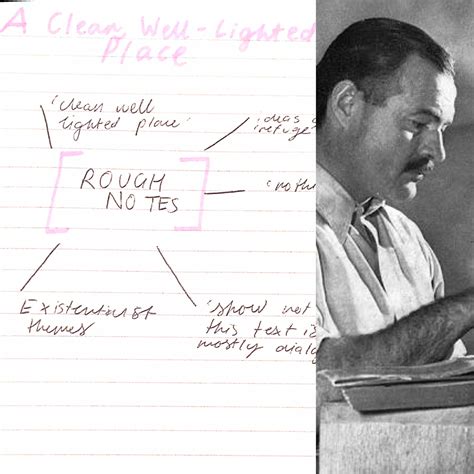 A Clean Well-Lighted
Place
'clean well
lighted place'
ideas
'refuge
ROUGH
NOTES
Existentialist
themes
'show not
this text is
mostly